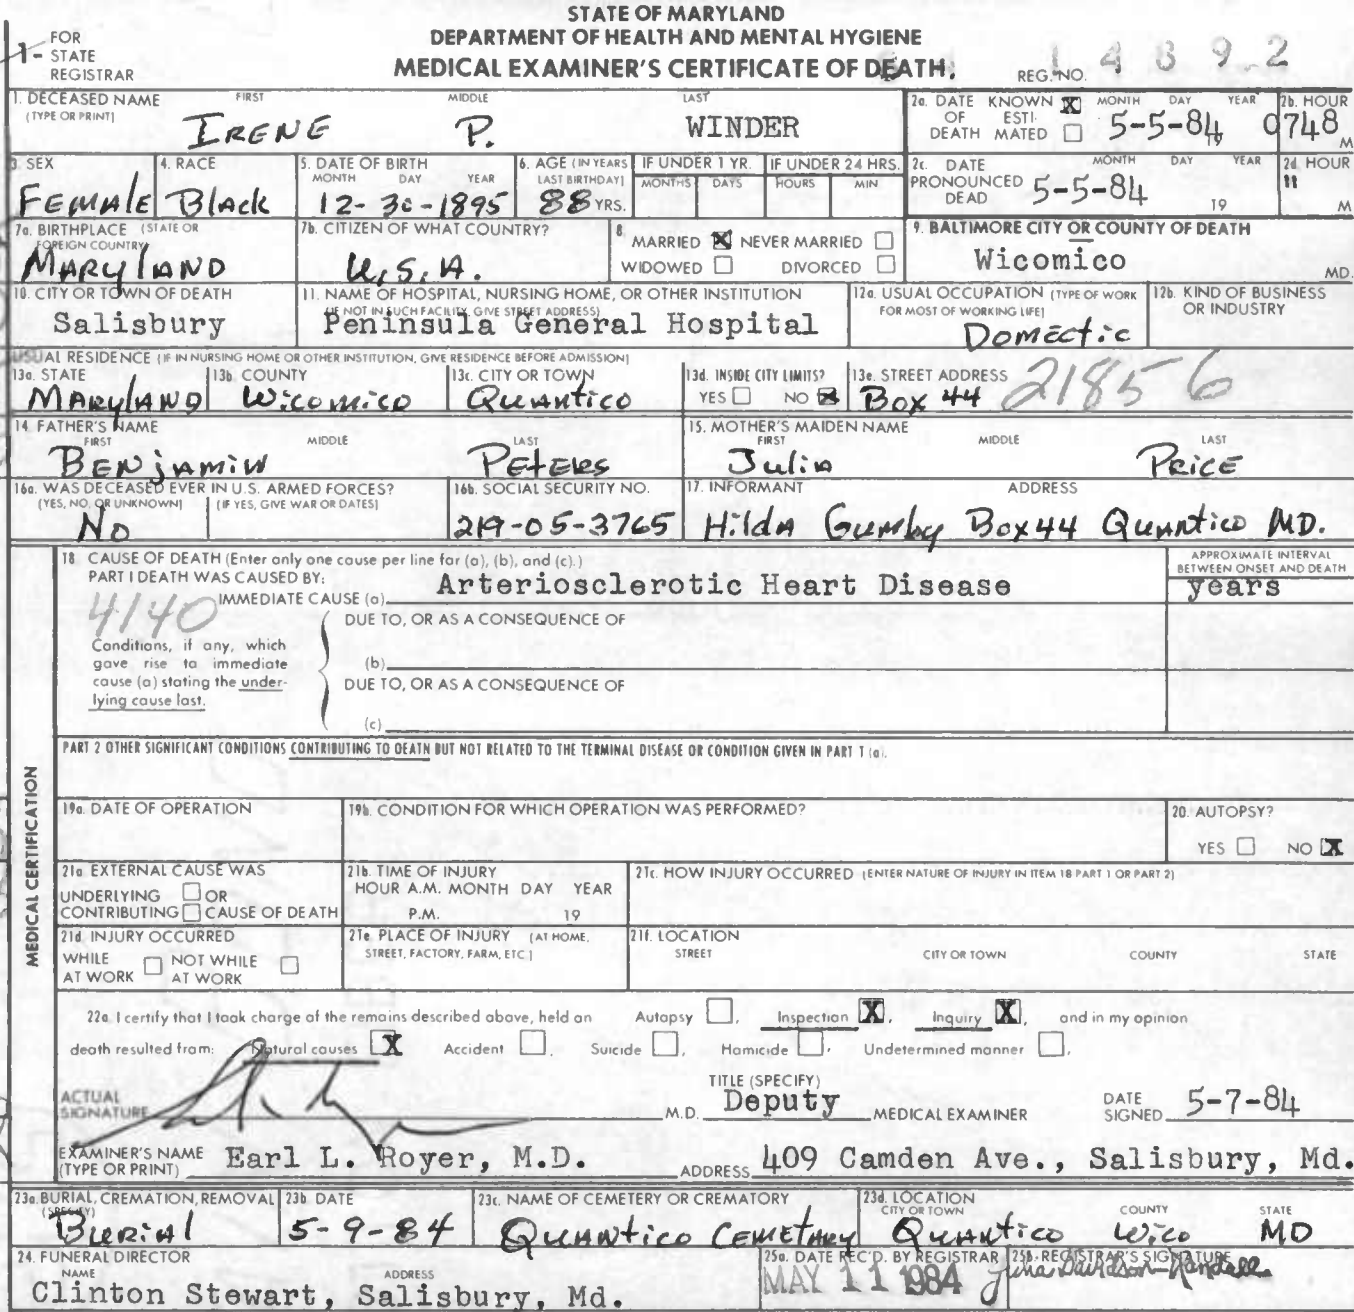 STATE OF MARYLAND
DEPARTMENT OF HEALTH AND MENTAL HYGIENE
MEDICAL EXAMINER'S CERTIFICATE OF DEATH.
1- FOR STATE REGISTRAR
REG. NO. 14892
1. DECEASED NAME (TYPE OR PRINT) FIRST MIDDLE LAST
IRENE P. WINDER
2a. DATE OF DEATH KNOWN X ESTIMATED MONTH DAY YEAR 5-5-84 19
2b. HOUR 0748 M
3. SEX Female
4. RACE Black
5. DATE OF BIRTH MONTH DAY YEAR 12-30-1895
6. AGE (IN YEARS LAST BIRTHDAY) 88 YRS.
IF UNDER 1 YR. MONTHS DAYS
IF UNDER 24 HRS. HOURS MIN
2c. DATE PRONOUNCED DEAD MONTH DAY YEAR 5-5-84 19
2d. HOUR " M
7a. BIRTHPLACE (STATE OR FOREIGN COUNTRY) MARYLAND
7b. CITIZEN OF WHAT COUNTRY? U.S.A.
8. MARRIED X NEVER MARRIED
WIDOWED DIVORCED
9. BALTIMORE CITY OR COUNTY OF DEATH
Wicomico MD.
10. CITY OR TOWN OF DEATH
Salisbury
11. NAME OF HOSPITAL, NURSING HOME, OR OTHER INSTITUTION
(IF NOT IN SUCH FACILITY, GIVE STREET ADDRESS)
Peninsula General Hospital
12a. USUAL OCCUPATION (TYPE OF WORK FOR MOST OF WORKING LIFE)
Domectic
12b. KIND OF BUSINESS OR INDUSTRY
USUAL RESIDENCE (IF IN NURSING HOME OR OTHER INSTITUTION, GIVE RESIDENCE BEFORE ADMISSION)
13a. STATE MARYLAND
13b. COUNTY Wicomico
13c. CITY OR TOWN Quantico
13d. INSIDE CITY LIMITS? YES NO X
13e. STREET ADDRESS Box 44 21856
14. FATHER'S NAME FIRST MIDDLE LAST
BENjamin PETERS
15. MOTHER'S MAIDEN NAME FIRST MIDDLE LAST
Julia PRICE
16a. WAS DECEASED EVER IN U.S. ARMED FORCES?
(YES, NO, OR UNKNOWN) (IF YES, GIVE WAR OR DATES)
No
16b. SOCIAL SECURITY NO.
219-05-3765
17. INFORMANT ADDRESS
Hilda Gumby Box 44 Quantico MD.
MEDICAL CERTIFICATION
18. CAUSE OF DEATH (Enter only one cause per line for (a), (b), and (c).)
PART I DEATH WAS CAUSED BY:
IMMEDIATE CAUSE (a) Arteriosclerotic Heart Disease
APPROXIMATE INTERVAL BETWEEN ONSET AND DEATH
years
4140
DUE TO, OR AS A CONSEQUENCE OF
Conditions, if any, which gave rise to immediate cause (a) stating the underlying cause last.
(b)
DUE TO, OR AS A CONSEQUENCE OF
(c)
PART 2 OTHER SIGNIFICANT CONDITIONS CONTRIBUTING TO DEATH BUT NOT RELATED TO THE TERMINAL DISEASE OR CONDITION GIVEN IN PART 1 (a).
19a. DATE OF OPERATION
19b. CONDITION FOR WHICH OPERATION WAS PERFORMED?
20. AUTOPSY?
YES NO X
21a. EXTERNAL CAUSE WAS
UNDERLYING OR
CONTRIBUTING CAUSE OF DEATH
21b. TIME OF INJURY
HOUR A.M. MONTH DAY YEAR
P.M. 19
21c. HOW INJURY OCCURRED (ENTER NATURE OF INJURY IN ITEM 18 PART 1 OR PART 2)
21d. INJURY OCCURRED
WHILE AT WORK NOT WHILE AT WORK
21e. PLACE OF INJURY (AT HOME, STREET, FACTORY, FARM, ETC.)
21f. LOCATION
STREET CITY OR TOWN COUNTY STATE
22a. I certify that I took charge of the remains described above, held an Autopsy , Inspection X, Inquiry X, and in my opinion
death resulted from: Natural causes X Accident , Suicide , Homicide , Undetermined manner .
ACTUAL SIGNATURE M.D.
TITLE (SPECIFY) Deputy MEDICAL EXAMINER
DATE SIGNED 5-7-84
EXAMINER'S NAME (TYPE OR PRINT) Earl L. Royer, M.D.
ADDRESS 409 Camden Ave., Salisbury, Md.
23a. BURIAL, CREMATION, REMOVAL (SPECIFY)
Burial
23b. DATE
5-9-84
23c. NAME OF CEMETERY OR CREMATORY
Quantico Cemetary
23d. LOCATION CITY OR TOWN COUNTY STATE
Quantico Wico MD
24. FUNERAL DIRECTOR
NAME ADDRESS
Clinton Stewart, Salisbury, Md.
25a. DATE REC'D. BY REGISTRAR
MAY 11 1984
25b. REGISTRAR'S SIGNATURE
Davidson-Randall